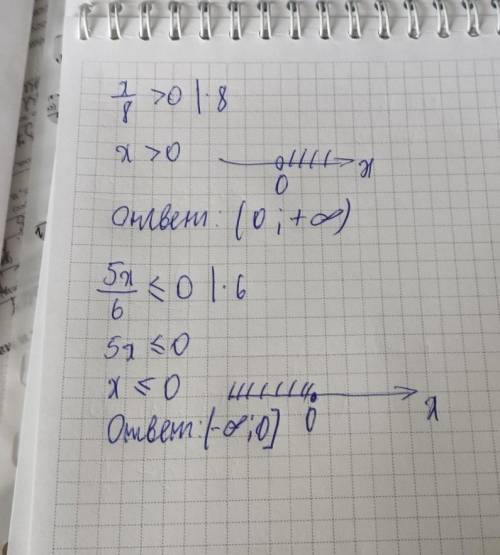 x/8 >0 |·8
x >0
0 x
Ответ: (0; +∞)
5x/6 ≤ 0 |·6
5x ≤0
x ≤ 0
0 x
Ответ: (-∞;0]